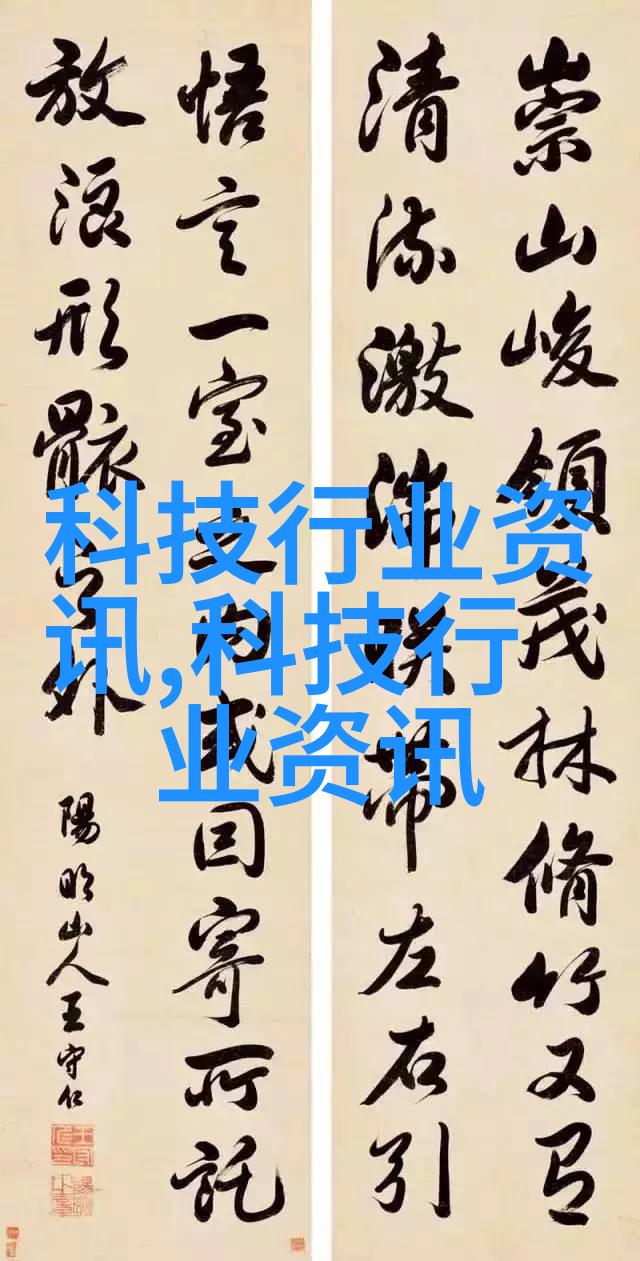 崇山峻領茂林脩竹又有
清流激湍暎帶左右引
悟言一室之内或因寄所託
放浪形骸之外
陽明山人王守仁
科技行业资
讯,科技行
业资讯